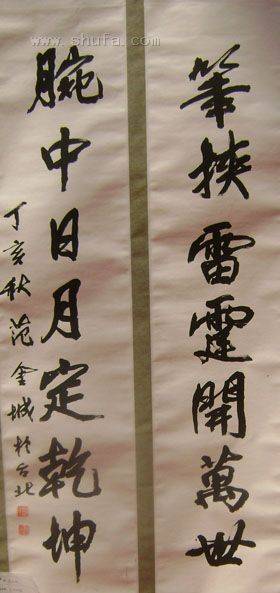 筆挾雷霆開萬世
腕中日月定乾坤
丁亥秋范金城於台北
www.shufa.com